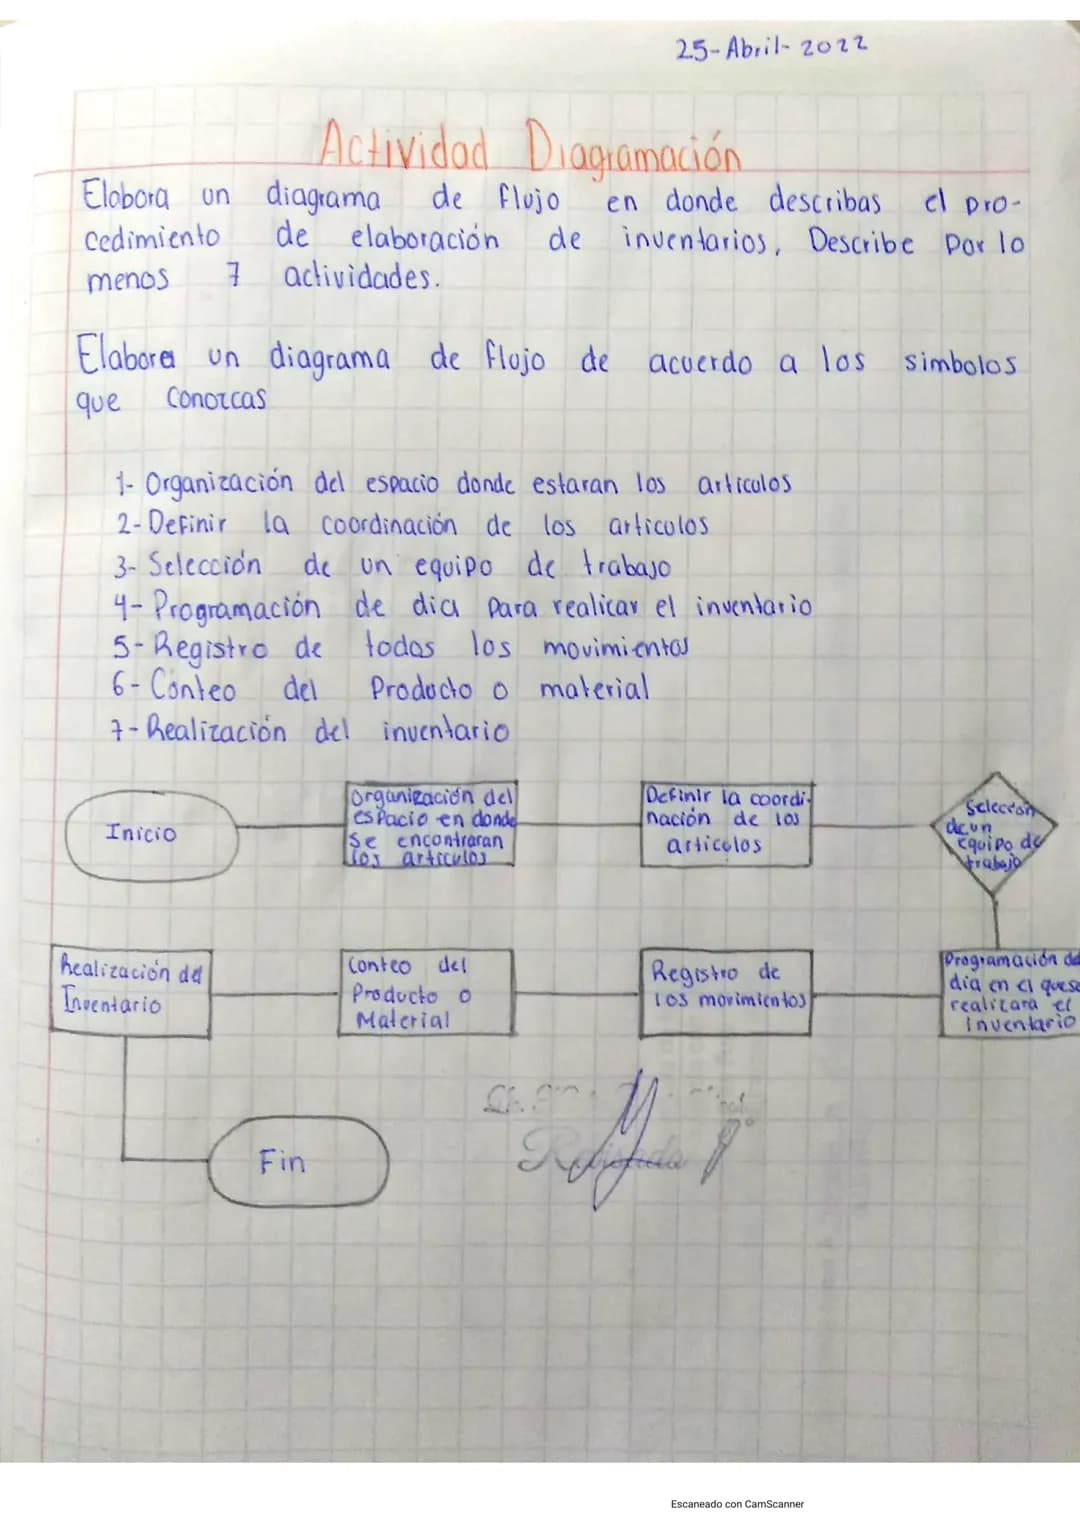 25-Abril-2022
Actividad Diagramación
Elabora un diagrama de flujo en donde describas el pro-
cedimiento de elaboración de inventarios, Describe por lo
menos 7 actividades.
Elabora un diagrama de flujo de acuerdo a los simbolos
que conozcas
1- Organización del espacio donde estaran los articulos
2- Definir la coordinación de los articulos
3- Selección de un equipo de trabajo
4- Programación de dia para realicar el inventario
5- Registro de todos los movimientos
6- Conteo del Producto o material
7- Realización del inventario
Inicio
Organización del
espacio en donde
se encontraran
los articulos
Definir la coordi-
nación de los
articulos
Selección
de un
equipo de
trabajo
Realización del
Inventario
Conteo del
Producto o
Material
Registro de
los movimientos
Programación del
dia en el que se
realizara el
inventario
Fin
Revisado
Escaneado con CamScanner